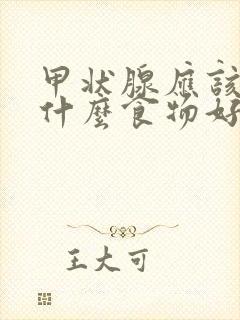 甲状腺应該
什麼食物好
王大可